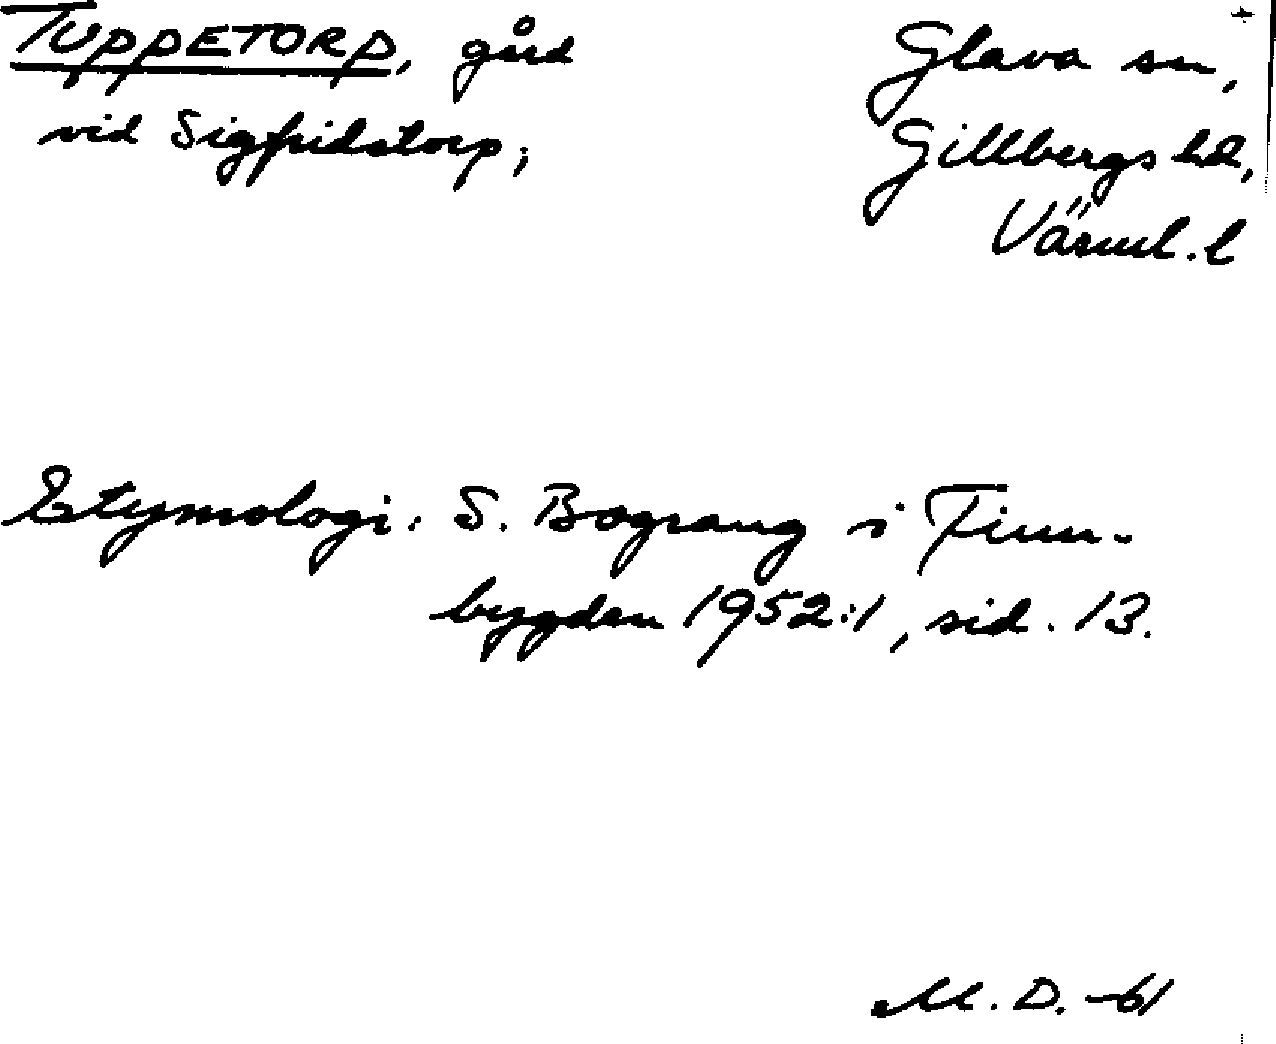 TUPPETORP, gård
vid Sigfridstorp;
Glava sn,
Gillbergs hd,
Värml. l
Etymologi: S. Bograng i Finn-
bygden 1952:1, sid. 13.
M. D. -61